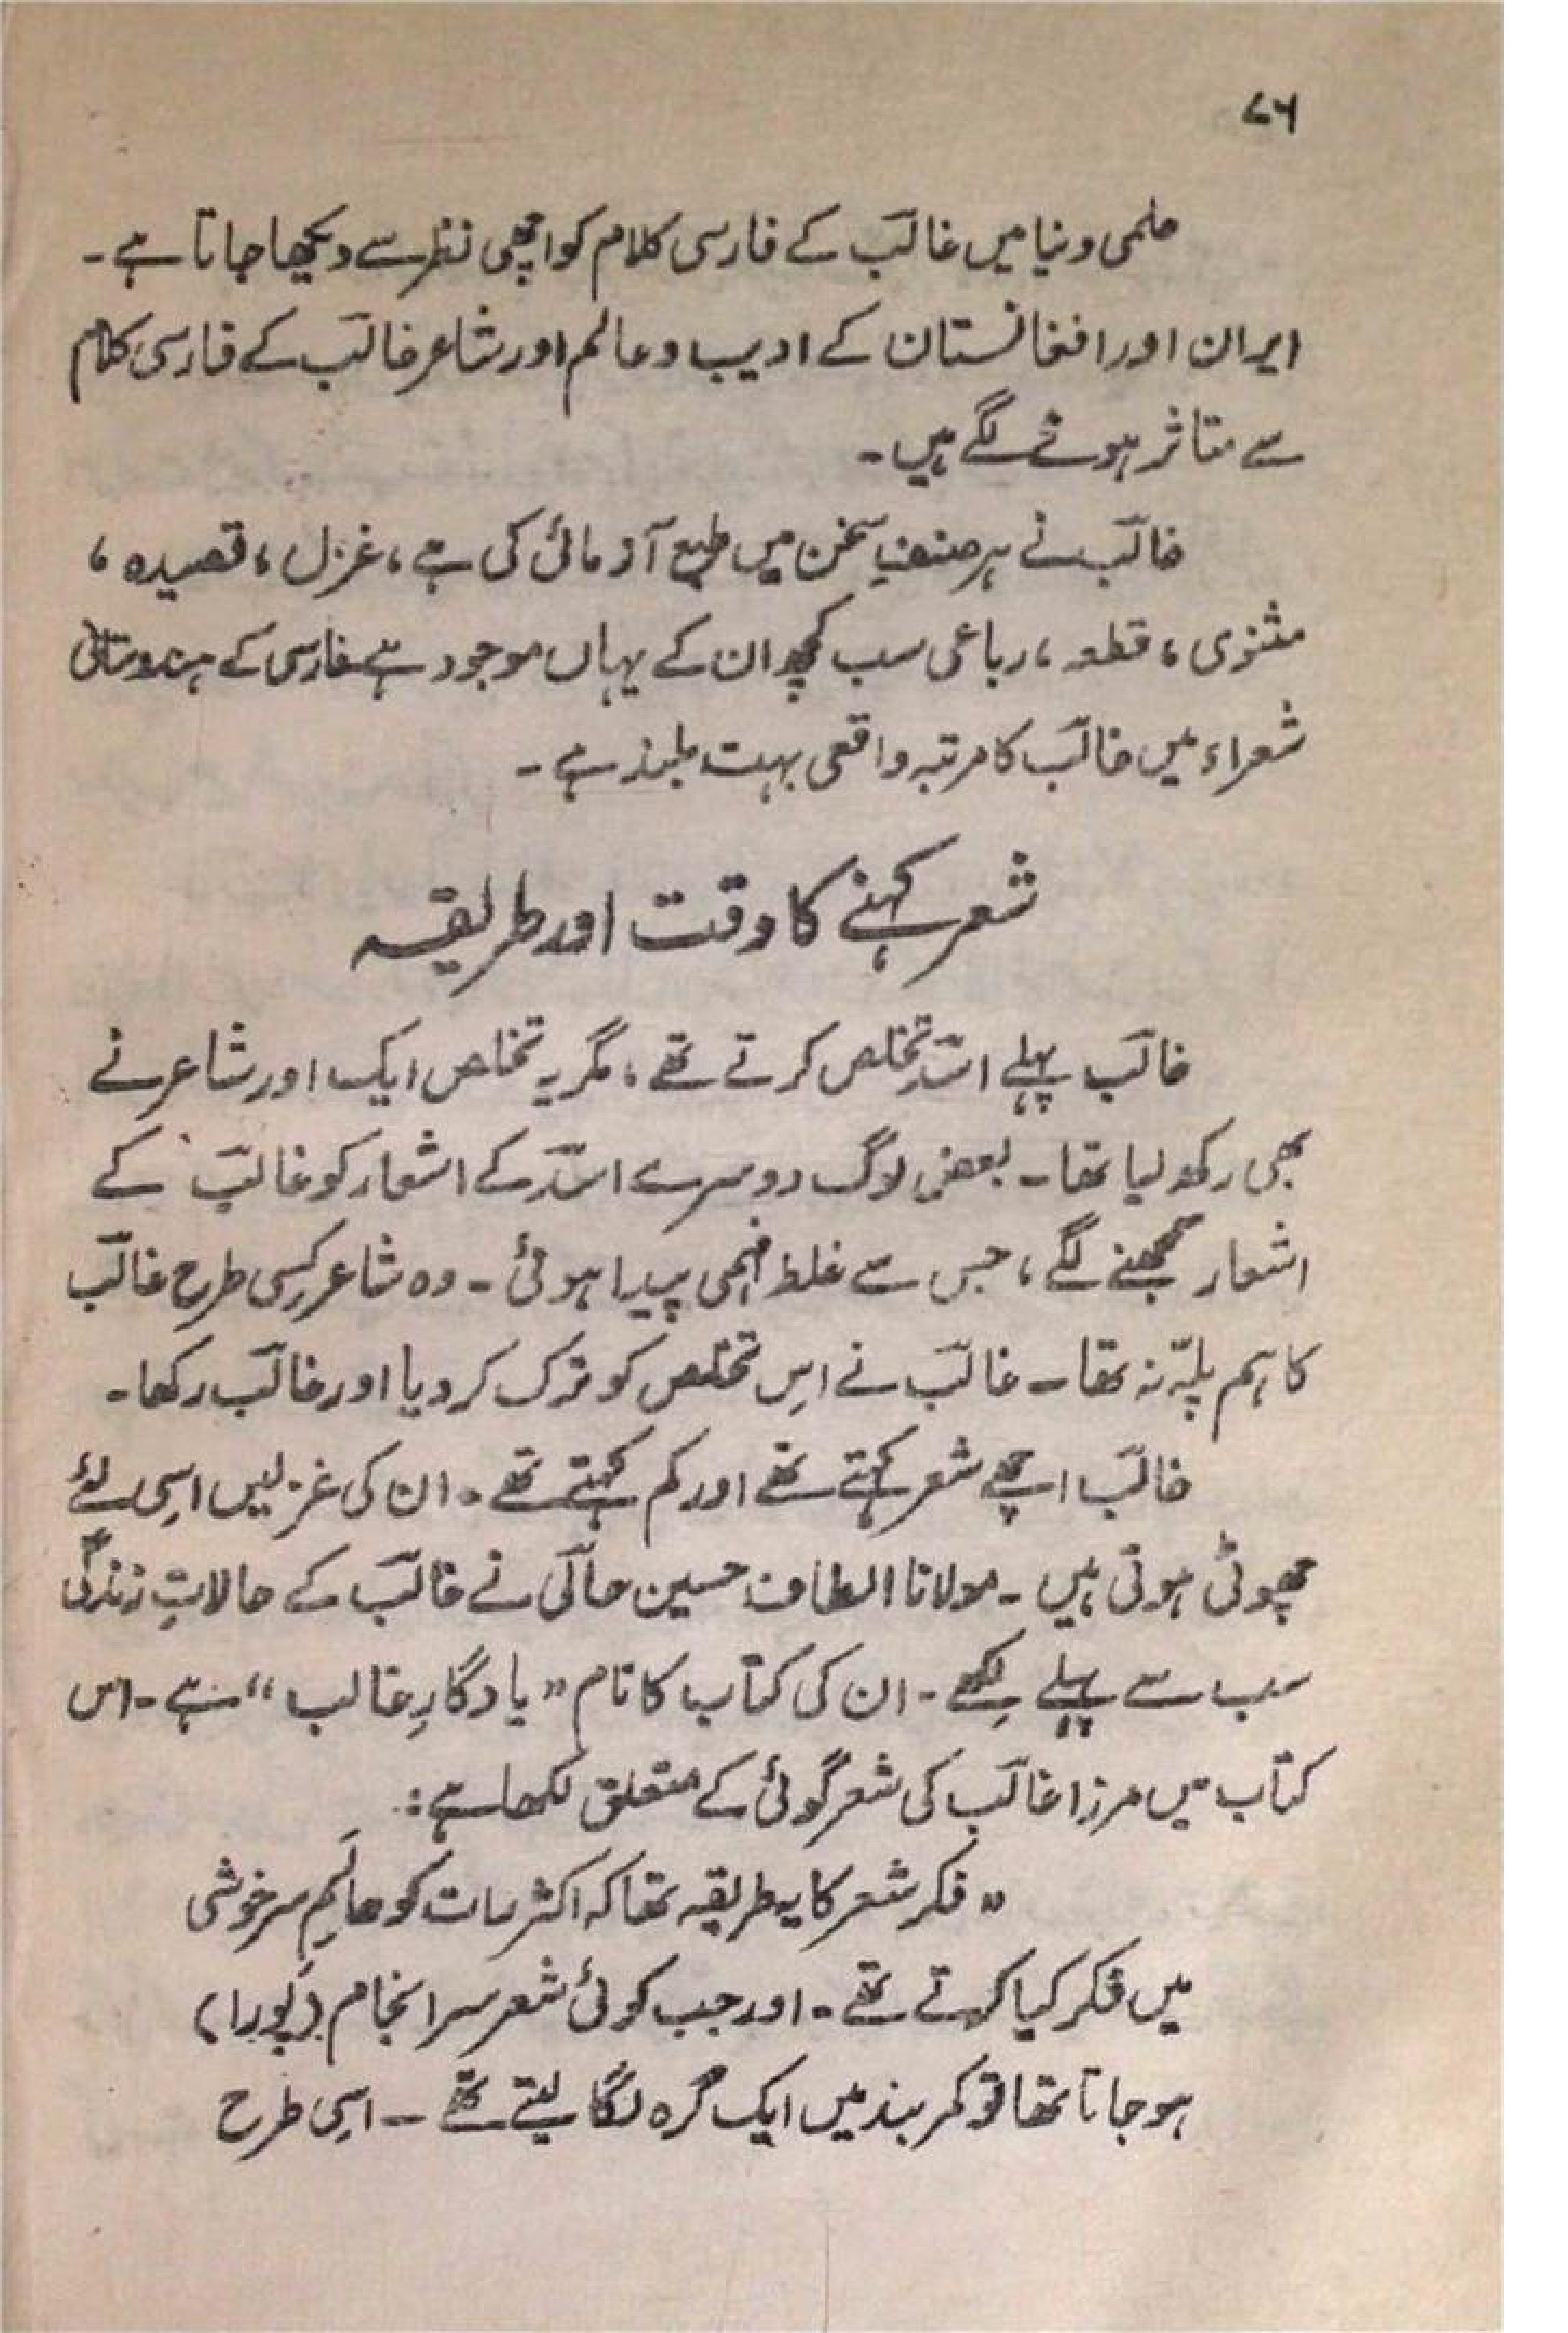 ۷۶
علمی دنیا میں غالبؔ کے فارسی کلام کو اچھی نظر سے دیکھا جاتا ہے۔
ایران اور افغانستان کے ادیب و عالم اور شاعر غالبؔ کے فارسی کلام
سے متاثر ہونے لگے ہیں۔
غالبؔ نے ہر صنفِ سخن میں طبع آزمائی کی ہے، غزل، قصیدہ،
مثنوی، قطعہ، رباعی سب کچھ ان کے یہاں موجود ہے۔ فارسی کے ہندوستانی
شعراء میں غالبؔ کا مرتبہ واقعی بہت بلند ہے۔
شعر کہنے کا وقت اور طریقہ
غالبؔ پہلے اسدؔ تخلص کرتے تھے، مگر یہ تخلص ایک اور شاعر نے
بھی رکھ لیا تھا۔ بعض لوگ دوسرے اسدؔ کے اشعار کو غالبؔ کے
اشعار سمجھنے لگے، جس سے غلط فہمی پیدا ہوئی۔ وہ شاعر کسی طرح غالبؔ
کا ہم پلّہ نہ تھا۔ غالبؔ نے اِس تخلص کو ترک کر دیا اور غالبؔ رکھا۔
غالبؔ اچھے شعر کہتے تھے اور کم کہتے تھے۔ ان کی غزلیں اسی لئے
چھوٹی ہوتی ہیں۔ مولانا الطاف حسین حالؔی نے غالبؔ کے حالاتِ زندگی
سب سے پہلے لِکھے۔ ان کی کتاب کا نام ”یادگارِ غالب“ ہے۔ اس
کتاب میں مرزا غالبؔ کی شعر گوئی کے متعلق لکھا ہے:
”فکر شعر کا یہ طریقہ تھا کہ اکثر رات کو عالَمِ سرخوشی
میں فکر کیا کرتے تھے۔ اور جب کوئی شعر سرانجام (پورا)
ہو جاتا تھا تو کمر بند میں ایک گرہ لگا لیتے تھے ـــ اسی طرح